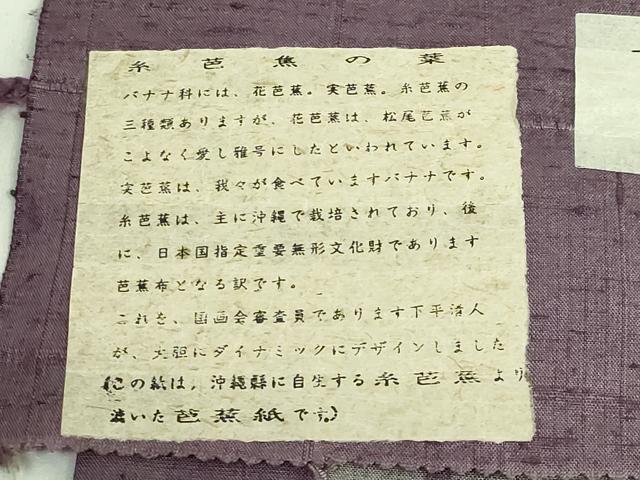 糸芭蕉の葉
バナナ科には、花芭蕉。実芭蕉。糸芭蕉の
三種類ありますが、花芭蕉は、松尾芭蕉が
こよなく愛し雅号にしたといわれています。
実芭蕉は、我々が食べていますバナナです。
糸芭蕉は、主に沖縄で栽培されており、後
に、日本国指定重要無形文化財であります
芭蕉布となる訳です。
これを、国画会審査員であります下平清人
が、大胆にダイナミックにデザインしました
(この紙は、沖縄縣に自生する糸芭蕉より
漉いた芭蕉紙です。)